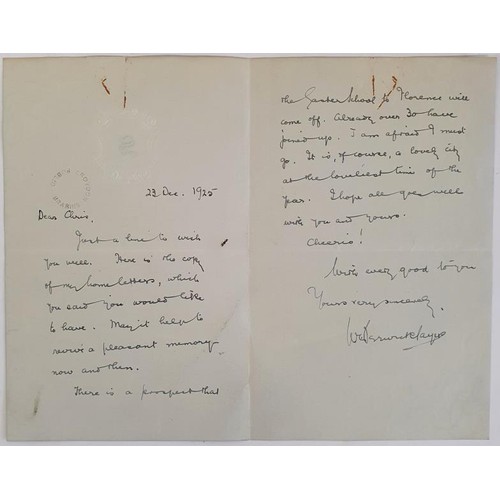 23 Dec. 1925
Dear Chris,
Just a line to wish
you well. Here is the copy
of my home letters, which
you said you would like
to have. May it help to
revive a pleasant memory
now and then.
There is a prospect that
the Easter School to Florence will
come off. Already over 30 have
joined up. I am afraid I must
go. It is, of course, a lovely city
at the loveliest time of the
year. I hope all goes well
with you and yours.
Cheerio!
With every good to you
Yours very sincerely,